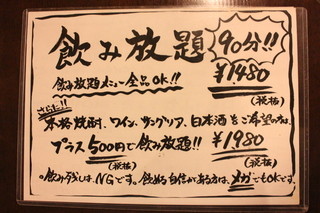 飲み放題 90分!!
飲み放題メニュー全品OK!! ¥1480
(税抜)
さらに!!
本格焼酎、ワイン、サングリア、日本酒をご希望の方は、
プラス500円で飲み放題!! ¥1980
(税抜) (税抜)
。飲み残しは、NGです。飲める自信がある方は、メガでもOKです。